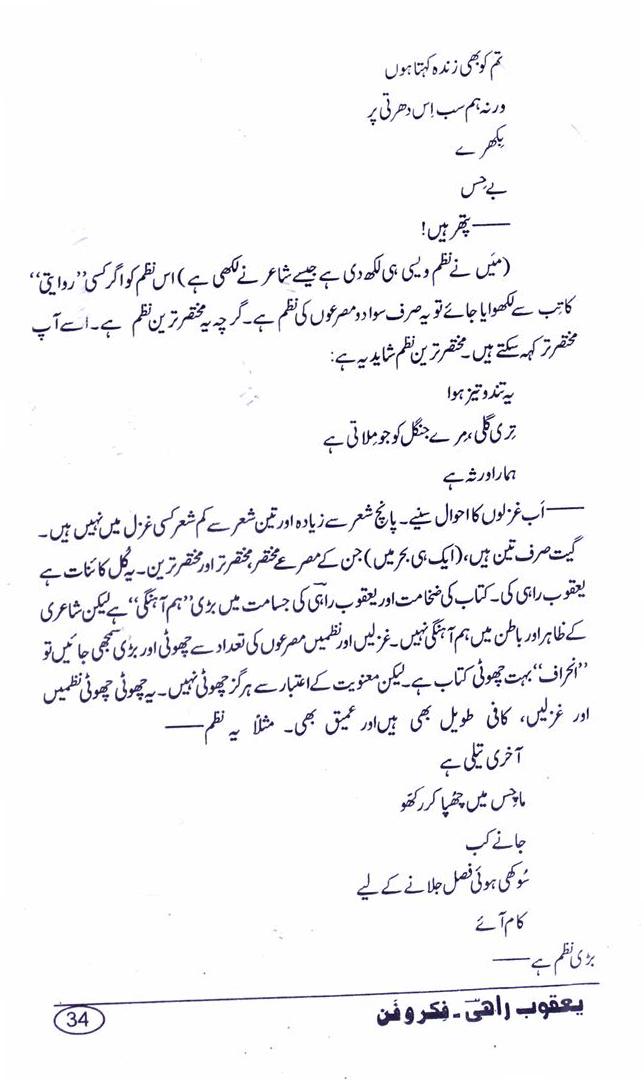 تم کو بھی زندہ کہتا ہوں
ورنہ ہم سب اِس دھرتی پر
بِکھرے
بے حِس
——پتھر ہیں!
(میَں نے نظم ویسی ہی لکھ دی ہے جیسے شاعر نے لکھی ہے) اس نظم کو اگر کسی ”روایتی“
کاتِب سے لکھوایا جائے تو یہ صرف سوا دو مصرعوں کی نظم ہے۔ گرچہ یہ مختصر ترین نظم ہے۔ اسے آپ
مختصر تر کہہ سکتے ہیں۔ مختصر ترین نظم شاید یہ ہے:
یہ تند و تیز ہوا
تِری گلی، مِرے جنگل کو جو مِلاتی ہے
ہمارا ورثہ ہے
——اَب غزلوں کا احوال سنیے۔ پانچ شعر سے زیادہ اور تین شعر سے کم شعر کسی غزل میں نہیں ہیں۔
گیت صرف تین ہیں، (ایک ہی بحر میں) جن کے مصرعے مختصر، مختصر تر اور مختصر ترین۔ یہ کُل کائنات ہے
یعقوب راہی کی۔ کتاب کی ضخامت اور یعقوب راہیؔ کی جسامت میں بڑی ”ہم آہنگی“ ہے لیکن شاعری
کے ظاہر اور باطن میں ہم آہنگی نہیں۔ غزلیں اور نظمیں مصرعوں کی تعداد سے چھوٹی اور بڑی سمجھی جائیں تو
”انحراف“ بہت چھوٹی کتاب ہے۔ لیکن معنویت کے اعتبار سے ہرگز چھوٹی نہیں۔ یہ چھوٹی چھوٹی نظمیں
اور غزلیں، کافی طویل بھی ہیں اور عمیق بھی۔ مثلاً یہ نظم——
آخری تیلی ہے
ماچس میں چُھپا کر رکھّو
جانے کب
سُوکھی ہوئی فصل جلانے کے لیے
کام آئے
بڑی نظم ہے——
یعقوب راھیؔ ۔ فِکر و فَن
34